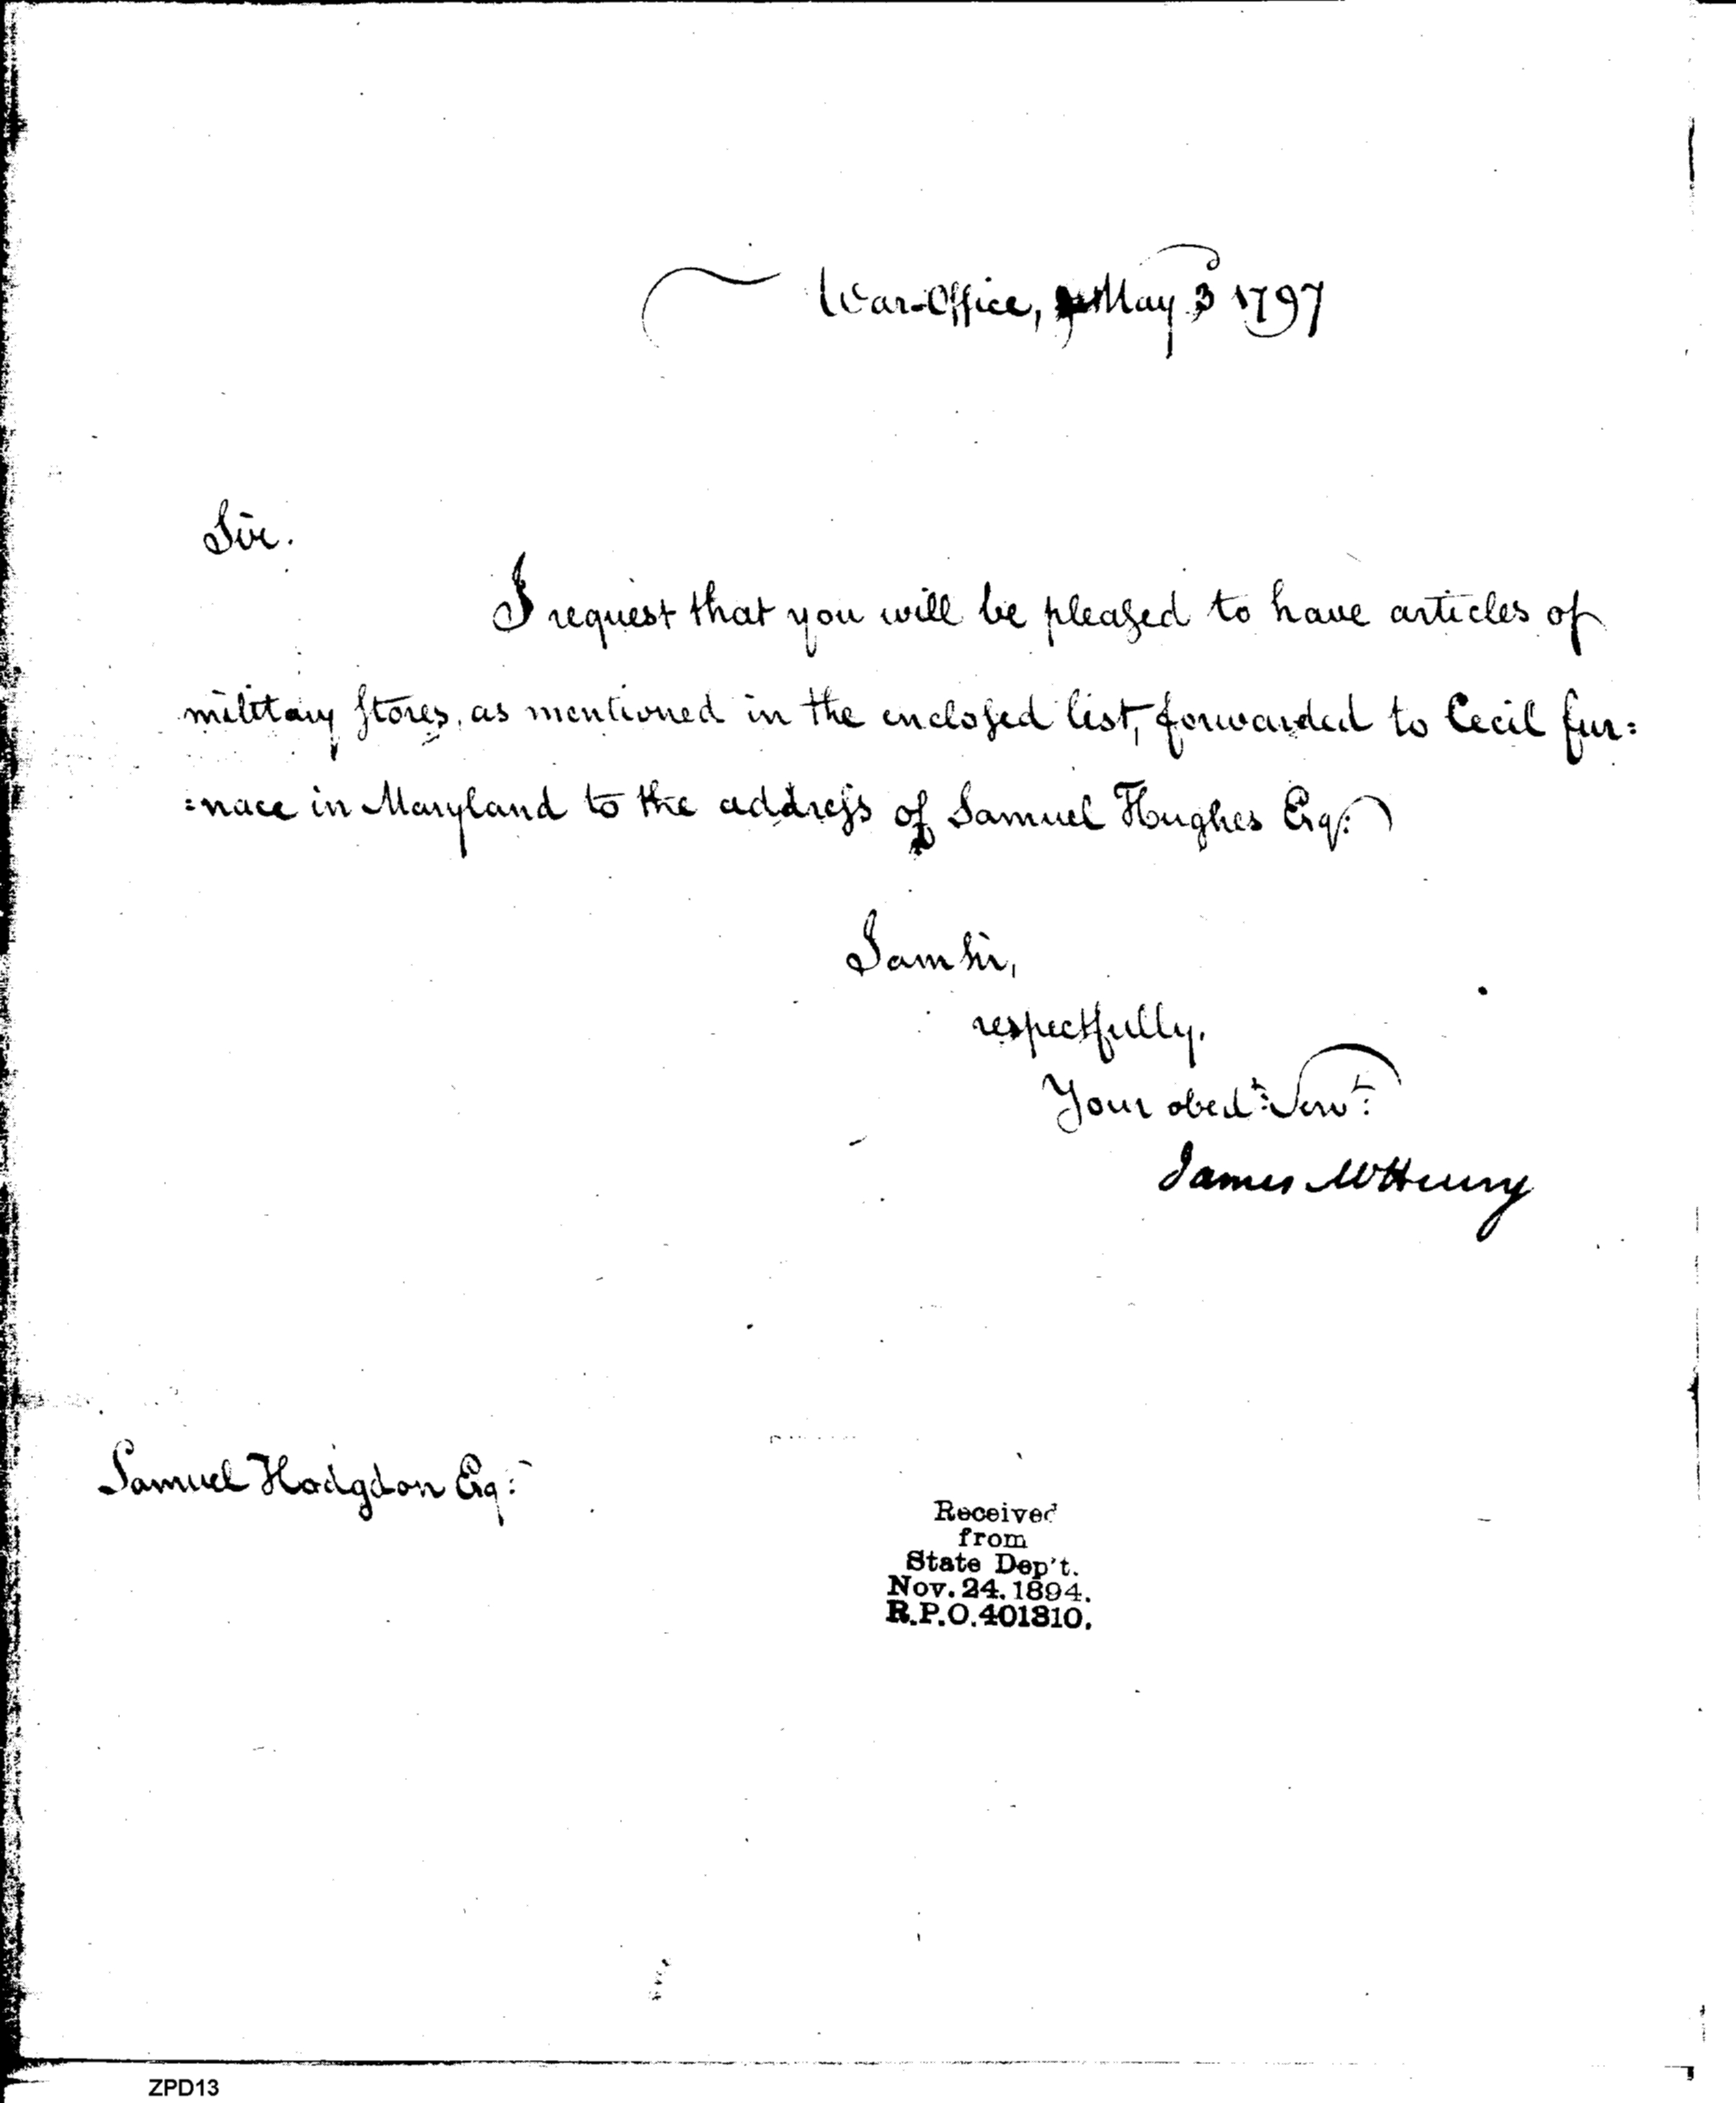 War-Office, May 3d 1797
Sir.
I request that you will be pleased to have articles of
military stores, as mentioned in the enclosed list, forwarded to Cecil fur=
=nace in Maryland to the address of Samuel Hughes Esq:r
I am Sir,
respectfully,
Your obed:t Serv:t
James McHenry
Samuel Hodgdon Esq:r
Received
from
State Dep't.
Nov. 24. 1894.
R.P.O. 401810.
ZPD13